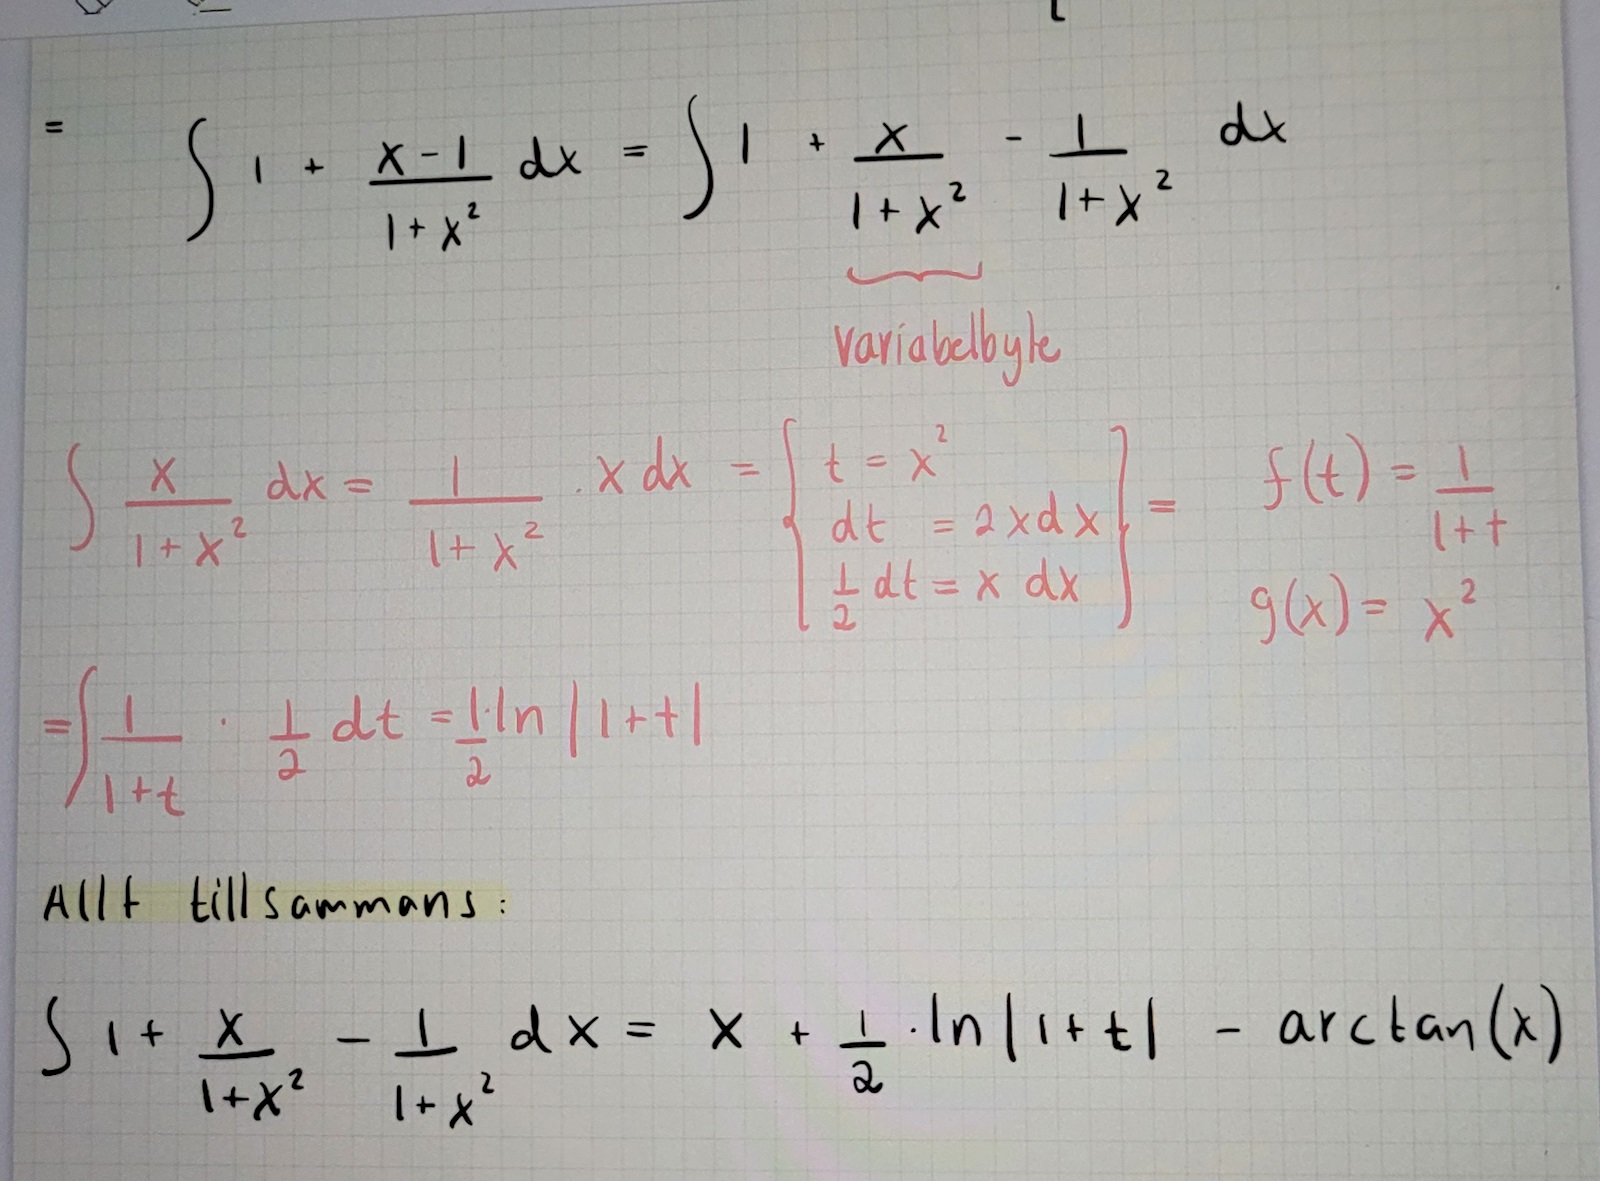 = ∫ 1 + (x-1)/(1+x²) dx = ∫ 1 + x/(1+x²) - 1/(1+x²) dx
variabelbyte
∫ x/(1+x²) dx = 1/(1+x²) · x dx = { t = x² } = f(t) = 1/(1+t)
dt = 2xdx
½ dt = x dx
g(x) = x²
= ∫ 1/(1+t) · ½ dt = ½·ln |1+t|
Allt tillsammans:
∫ 1 + x/(1+x²) - 1/(1+x²) dx = x + ½ · ln |1+t| - arctan(x)